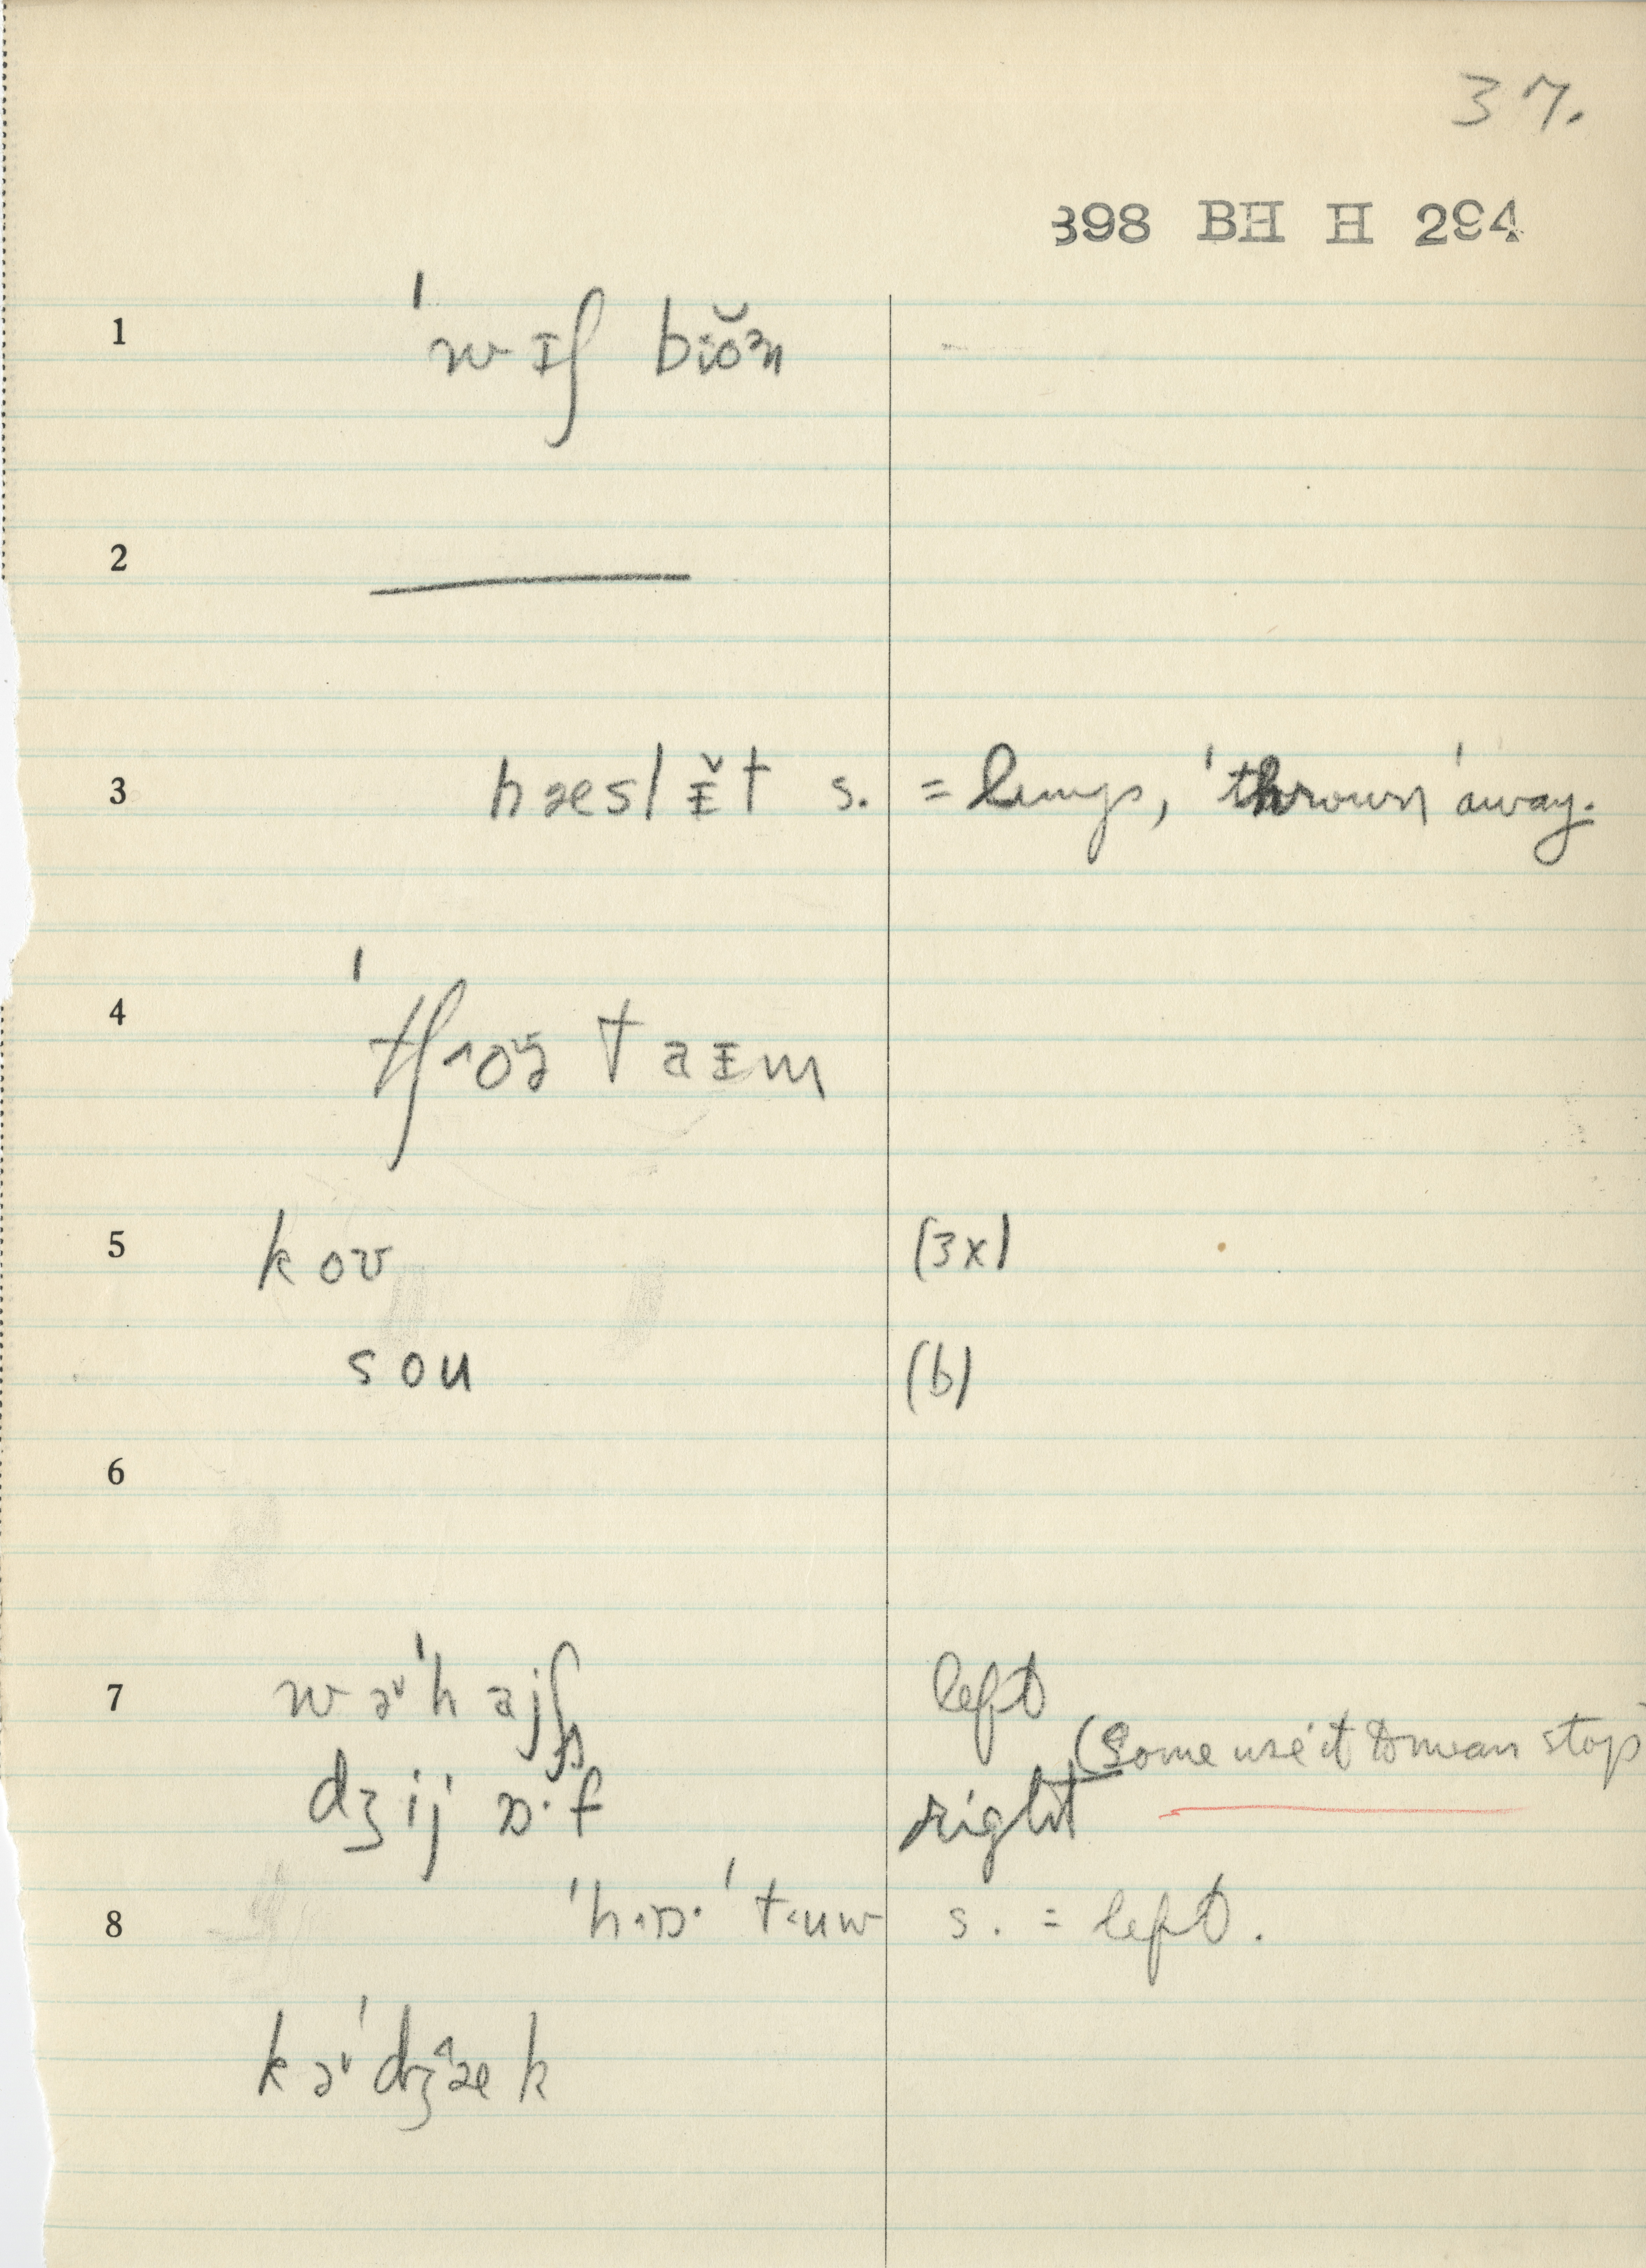 37.
898 BH H 294
1 ˈwɪʃ bĭo̯ᵊn
2
3 hæslɪ̆t s. = lungs, 'thrown' away.
4 ˈtʃ˄oɪz taɪm
5 koʊ (3x)
sou (b)
6
7 wəˈhajʃ left
(Some use it to mean stop
dʒij ɒ·f right
8 'h˄ɒ· 't˂uw s. = left.
kəˈdʒ˄æk